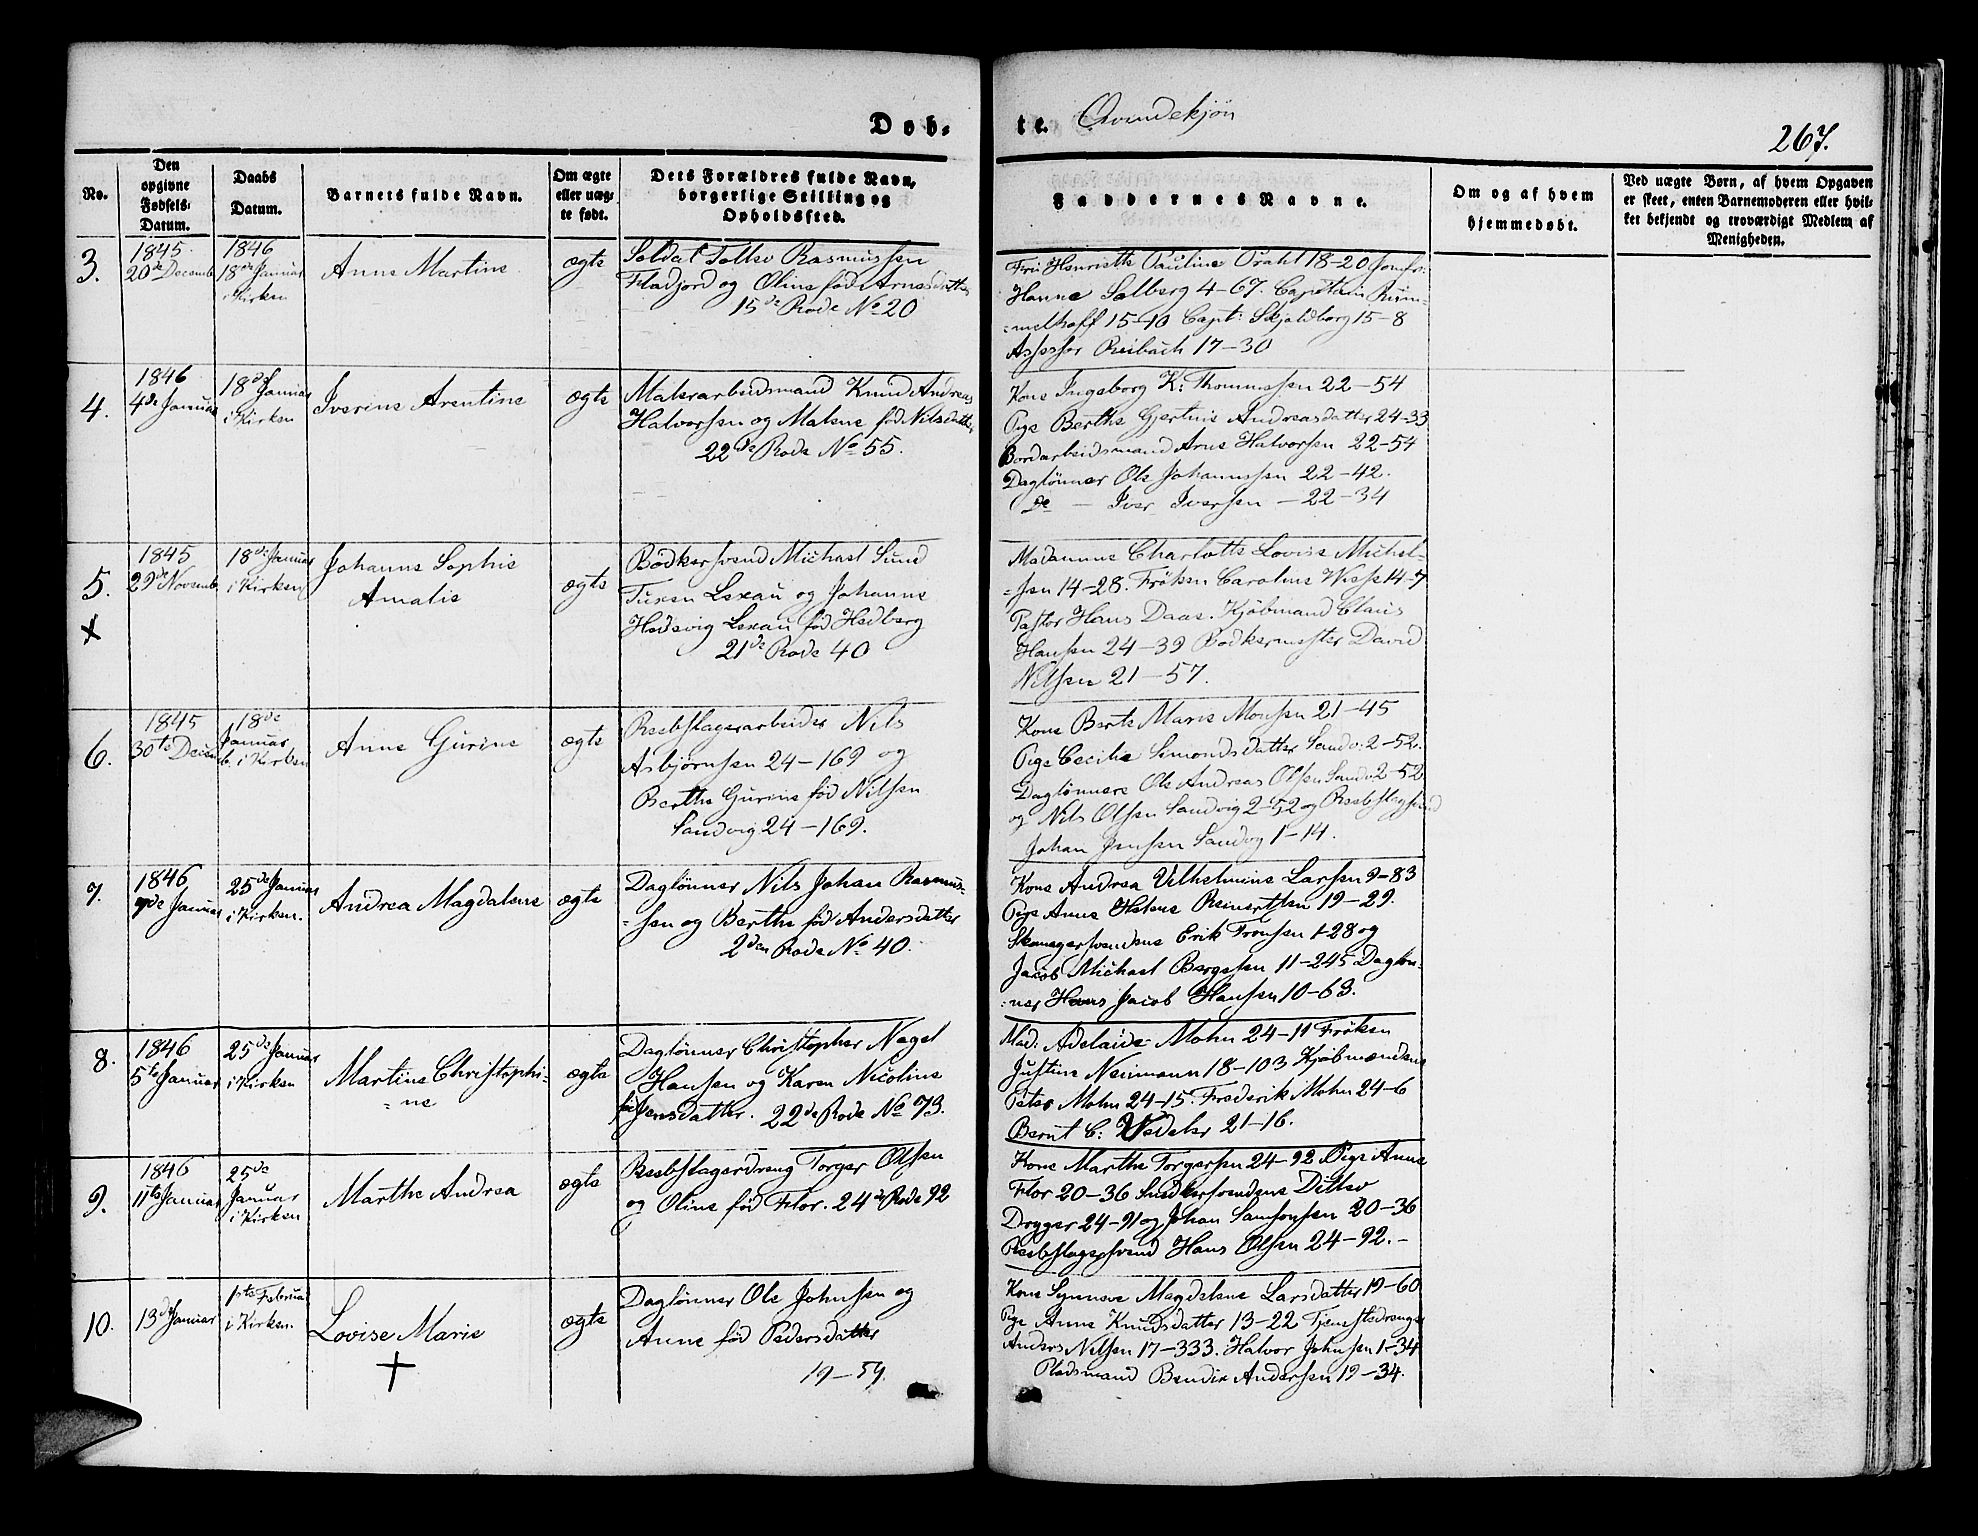 Døb-
te. Qvindekjøn
267.
No.
Den opgivne Fødsels-Datum.
Daabs Datum.
Barnets fulde Navn.
Om ægte eller uæg-te født.
Dets Forældres fulde Navn, borgerlige Stilling og Opholdssted.
Faddernes Navne.
Om og af hvem hjemmedøbt.
Ved uægte Børn, af hvem Opgaven er skeet, enten Barnemoderen eller hvil-ket bekjendt og troværdigt Medlem af Menigheden.
3.
1845
20de Decemb
1846
18de Januar
i Kirken
Anne Martine
ægte
Soldat Tollev Rasmussen
Fladjord og Oline fød Arnesdatter
15de Rode No 20
Fru Henriette Pauline Prahl 18-20 Jomfr:
Hanne Solberg 4-67. Capitain Rüm=
=melhoff 15-10 Capt: Skjoldborg 15-8
Assessor Reibach 17-30
4.
1846
4de Januar
18de Januar
i Kirken
Iverine Arentine
ægte
Malerarbeidsmand Knud Andreas
Halvorsen og Malene fød Nilsdatter
22de Rode No 55.
Kone Ingeborg K: Thommessen 22-54
Pige Berthe Gjertine Andreasdatter 24-33
Bordarbeidsmand Arne Halvorsen 22-54
Daglønner Ole Johannessen 22-42.
do - Iver Iversen - 22-34
5.
X
1845
29de Novemb
18de Januar
i Kirken
Johanne Sophie
Amalie
ægte
Bødkersvend Michael Sund
Turen Lexau og Johanne
Hedevig Lexau fød Hedberg
21de Rode 40
Madamme Charlotte Lovise Michel-
=sen 14-28. Frøken Caroline Wesse 14-7
Pastor Hans Daae. Kjøbmand Claus
Hansen 24-39 Bødkermester David
Nilsen 21-57.
6.
1845
30te Decem
18de
Januar
b. i Kirken
Anne Gurine
ægte
Reebslagerarbeider Nils
Asbjørnsen 24-169 og
Berthe Gurine fød Nilsen
Sandvig 24-169.
Kone Berte Marie Monsen 21-45
Pige Cecilie Simondsdatter Sandv: 2-52.
Daglønnere Ole Andreas Olsen Sandv 2-52
og Nils Olsen Sandvig 2-52 og Reebslagsvend
Johan Jensen Sandvig 1-14.
7.
1846
7de Januar
25de Januar
i Kirken.
Andrea Magdalene
ægte
Daglønner Nils Johan Rasmus-
=sen og Berthe fød Andersdatter
2den Rode No 40.
Kone Andrea Vilhelmine Larsen 9-83
Pige Anne Helene Reinertsen 19-29.
Skomagersvendene Erik Tronsen 1-28 og
Jacob Michael Bergesen 11-245 Dagløn-
=ner Hans Jacob Hansen 10-63.
8.
1846
5te Januar
25de Januar
i Kirken
Martine Christophi-
=ne
ægte
Daglønner Christopher Nagel
Hansen og Karen Nicoline
fød Jensdatter. 22de Rode No 73.
Mad: Adelaide Mohn 24-11 Frøken
Justine Neumann 18-103 Kjøbmændene
Peter Mohn 24-15. Frederik Mohn 24-6
Bernt C: Vedeler 21-16.
9.
1846
11te Januar
25de
Januar
i Kirken
Marthe Andrea
ægte
Reebslagerdreng Torger Olsen
og Oline fød Flor. 24de Rode 92
Kone Marthe Torgersen 24-92 Pige Anne
Flor 20-36 Snedkersvendene Ditlev
Drøger 24-91 og Johan Samsonsen 20-36
Reebslagersvend Hans Olsen 24-92.-
10.
13de Januar
1ste Februar
i Kirken.
Lovise Marie
ægte
Daglønner Ole Johnsen og
Anne fød Pedersdatter
19-59.
Kone Synneve Magdelene Larsdatter 19-60
Pige Anne Knudsdatter 13-22 Tjenestedrengene
Anders Nilsen 17-333. Halvor Johnsen 1-34
Pladsmand Bendix Andersen 19-34.